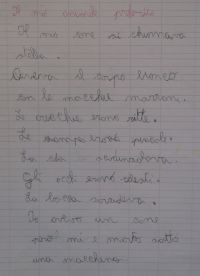 Il mio animale preferito
Il mio cane si chiamava
stella.
Aveva il corpo bianco
con le macchie marroni.
Le orecchie erano
Le zampe erano picole.
La coda
Gli occhi erano celesti.
La bocca sorrideva.
Io avevo un cane
però mi è morto sotto
una macchina